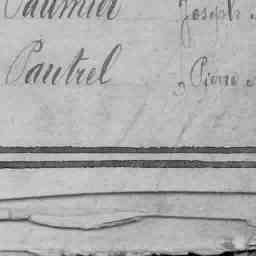 Paumier Joseph
Pautrel „ Pierre